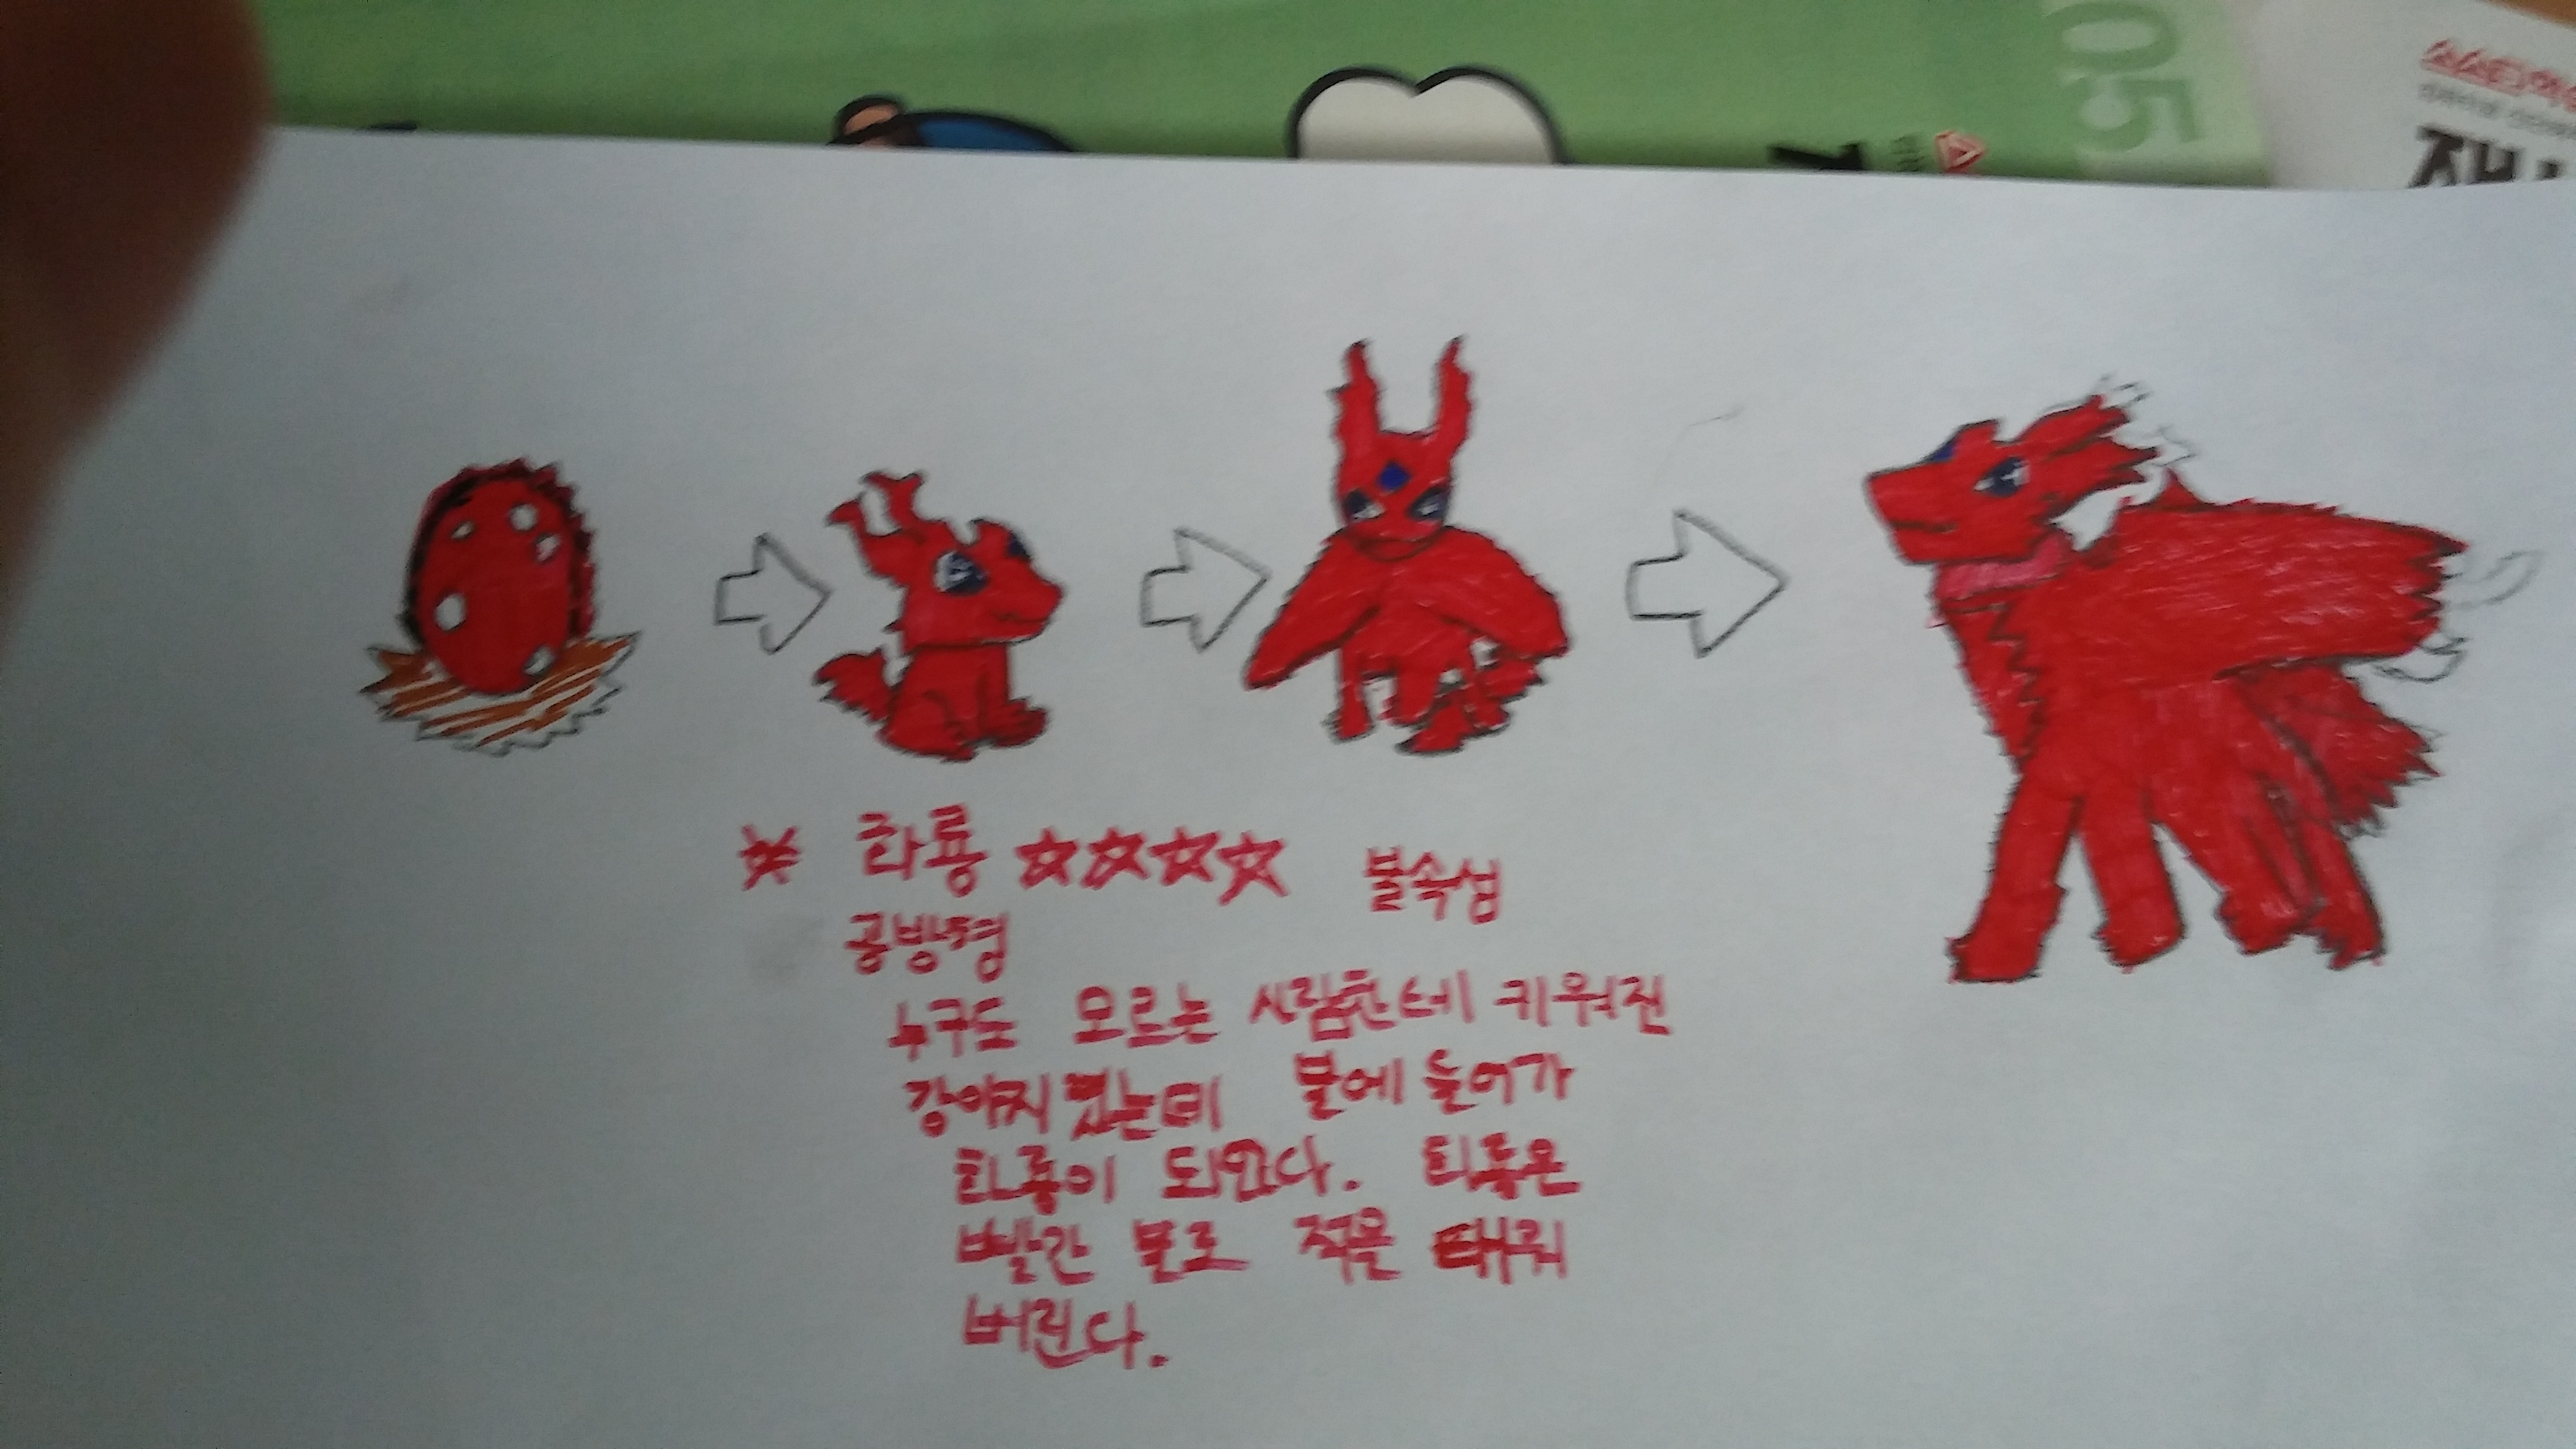 05
* 화룡 ☆☆☆☆ 불속성
공방형
누구도 모르는 사람한테 키워진
강아지였는데 불에 들어가
화룡이 되었다. 화룡은
빨간 불로 적을 태워
버린다.